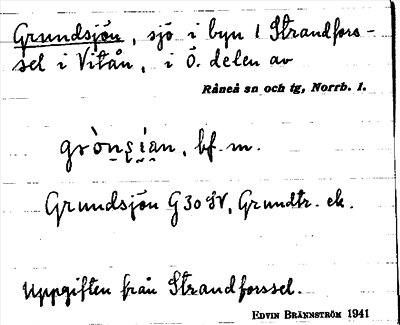 Grundsjön, sjö i byn 1 Strandfors-
sel i Vitån, i Ö. delen av
Råneå sn och tg, Norrb. l.
bf. m.
Grundsjön G 30 SV, Grundtr. ek.
Uppgiften från Strandforssel.
EDVIN BRÄNNSTRÖM 1941